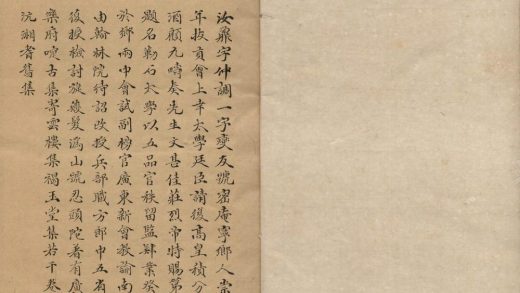 汝鼐字仲調一字燮友號密庵寧鄉人崇
年拔貢會上幸太學廷臣請復高皇積分
酒顧九疇奏先生文甚佳莊烈帝特賜第
題名勒石太學以五品官秩留監肄業癸
於鄉兩中會試副榜官廣東新會教諭南
由翰林院待詔改授兵部職方郎中五省
後授檢討旋薙髮溈山號忍頭陀著有廣
樂府嚏古集寄雲樓集褐玉堂集若干卷
沅湘耆舊集